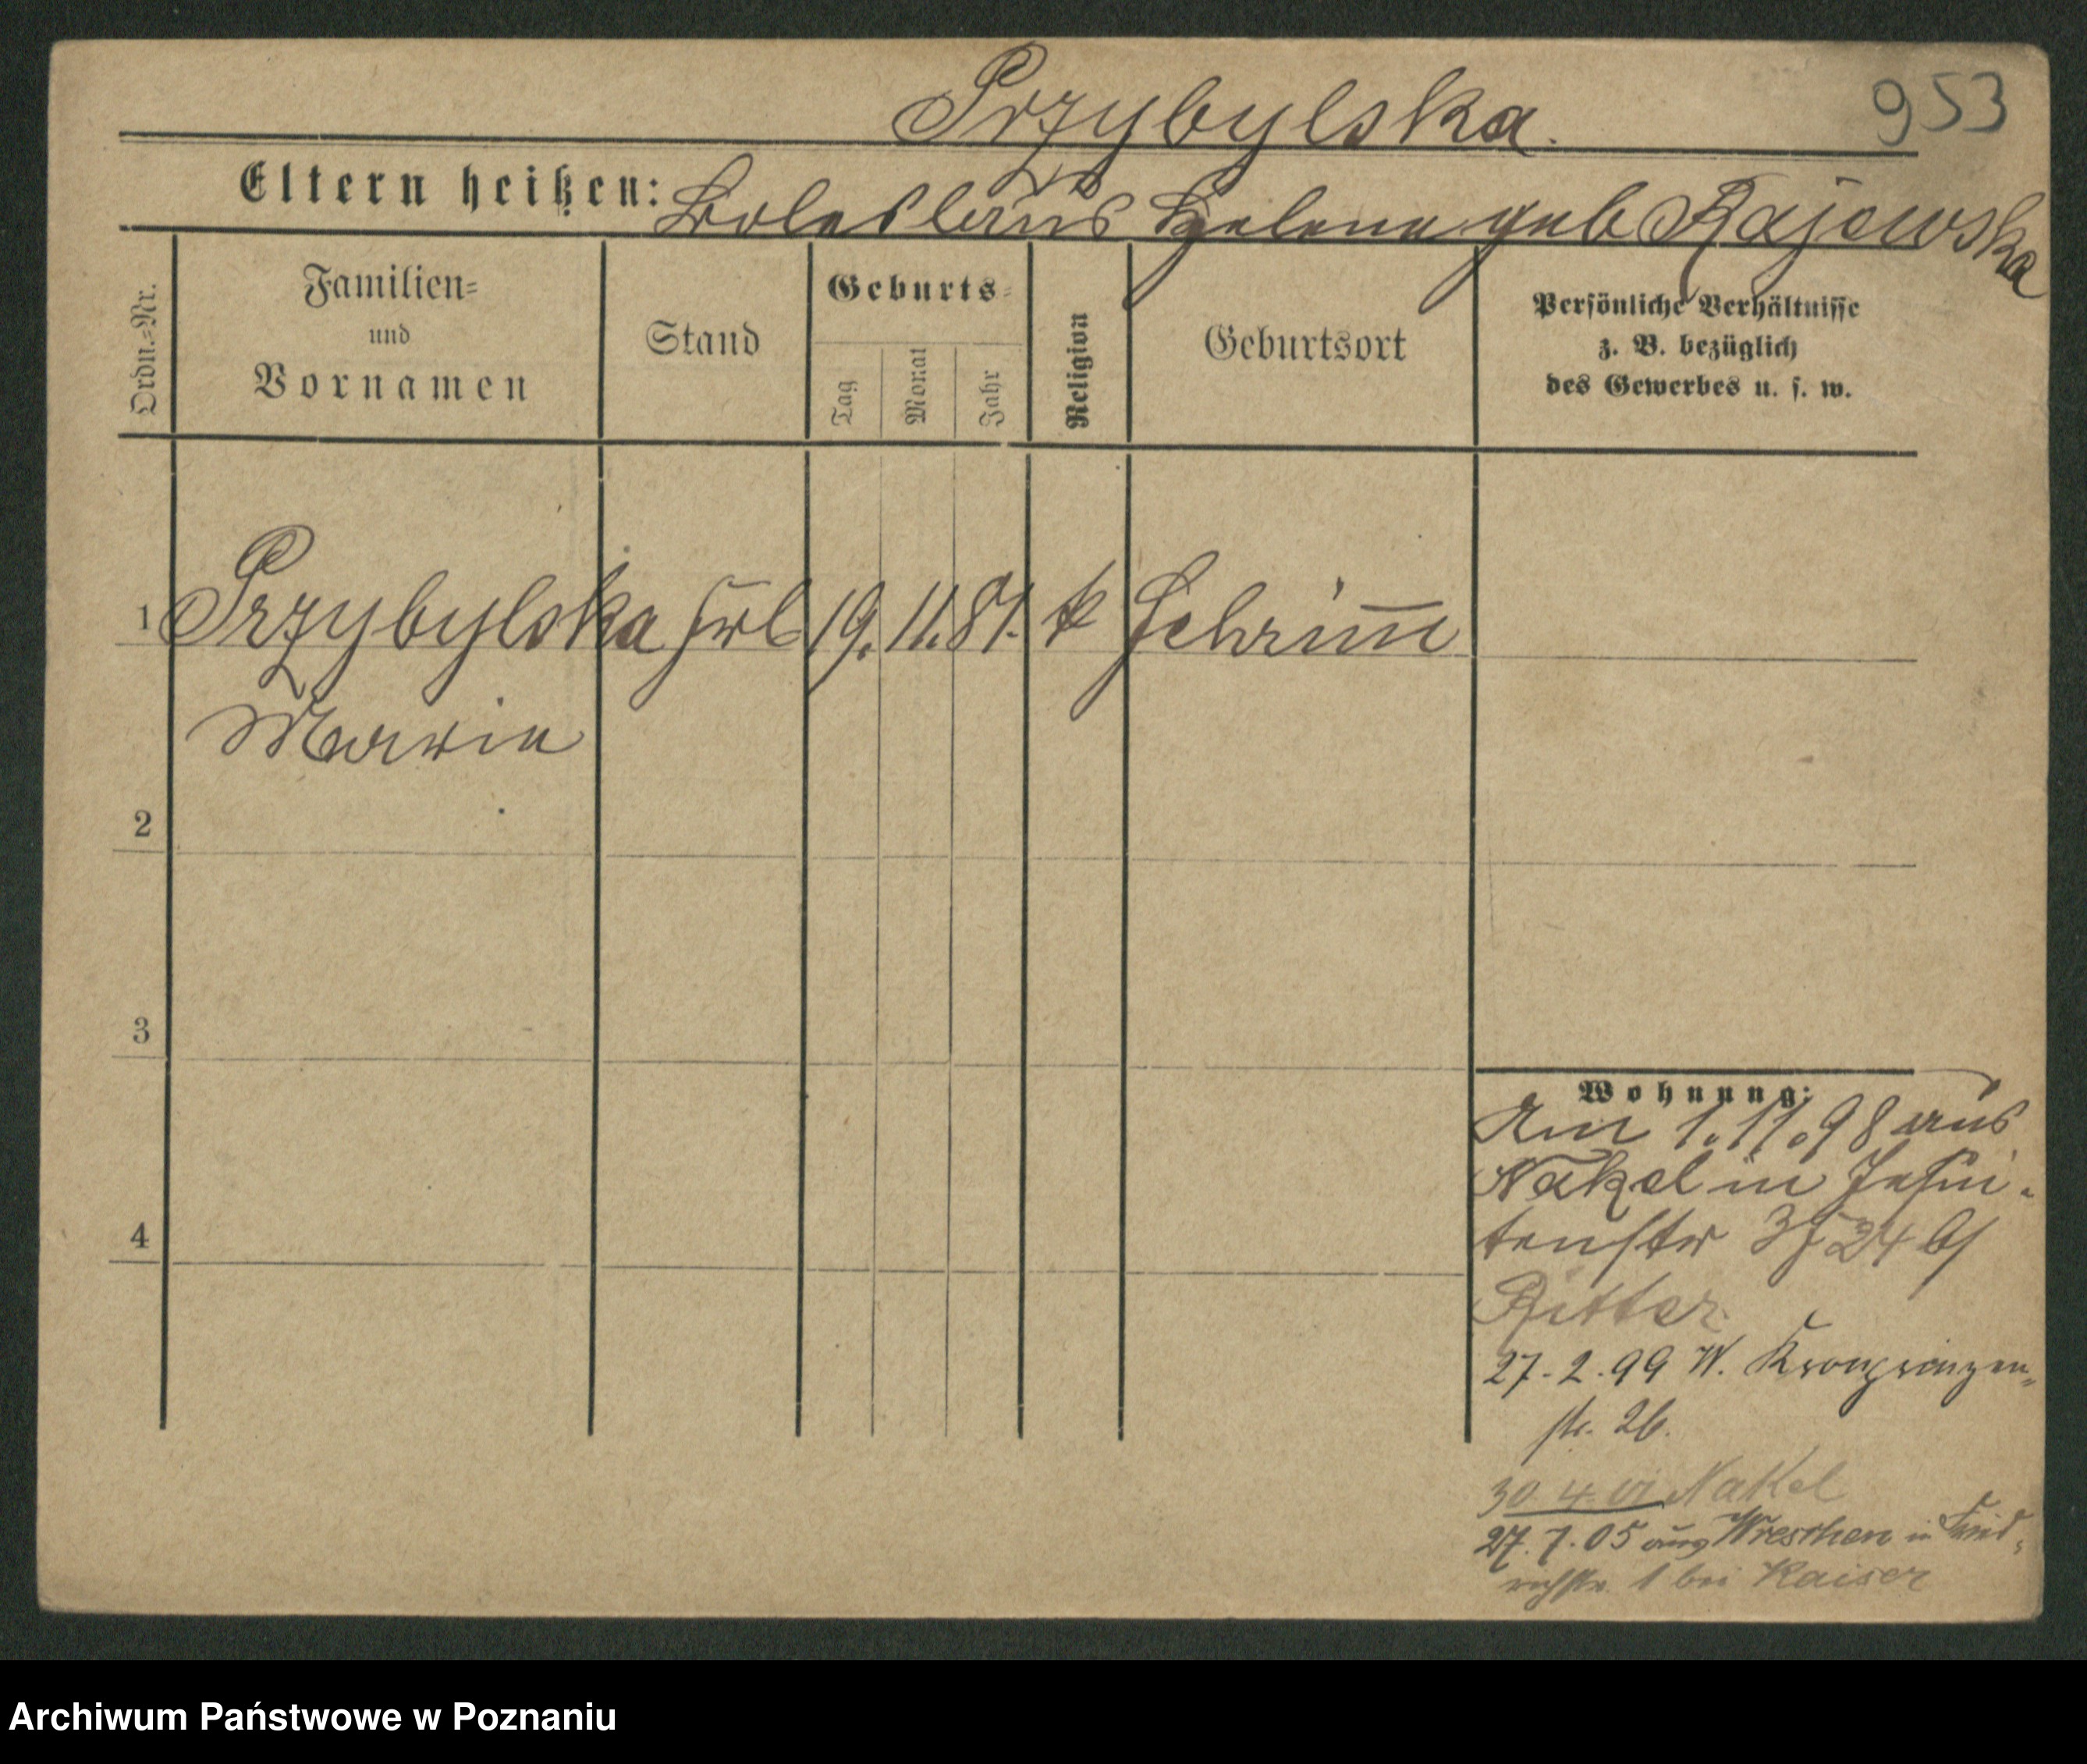 Przybylska.
953
Eltern heißen: Boleslaus Helene geb Rajewska
Ordn.-Nr.
Familien- und Vornamen
Stand
Geburts-
Tag
Monat
Jahr
Religion
Geburtsort
Persönliche Verhältnisse
z. B. bezüglich
des Gewerbes u. s. w.
1 Przybylska 19. 11. 81. k Schrimm
2
3
4
Wohnung:
Am 1.11.98 aus
Nakel in Jesui-
tenstr 24
Ritter
27.2.99 W. Kronprinzen-
str. 26.
30 4 Nakel
27.7.05 aus Wreschen in Fried-
richstr. 1 bei Kaiser
Archiwum Państwowe w Poznaniu